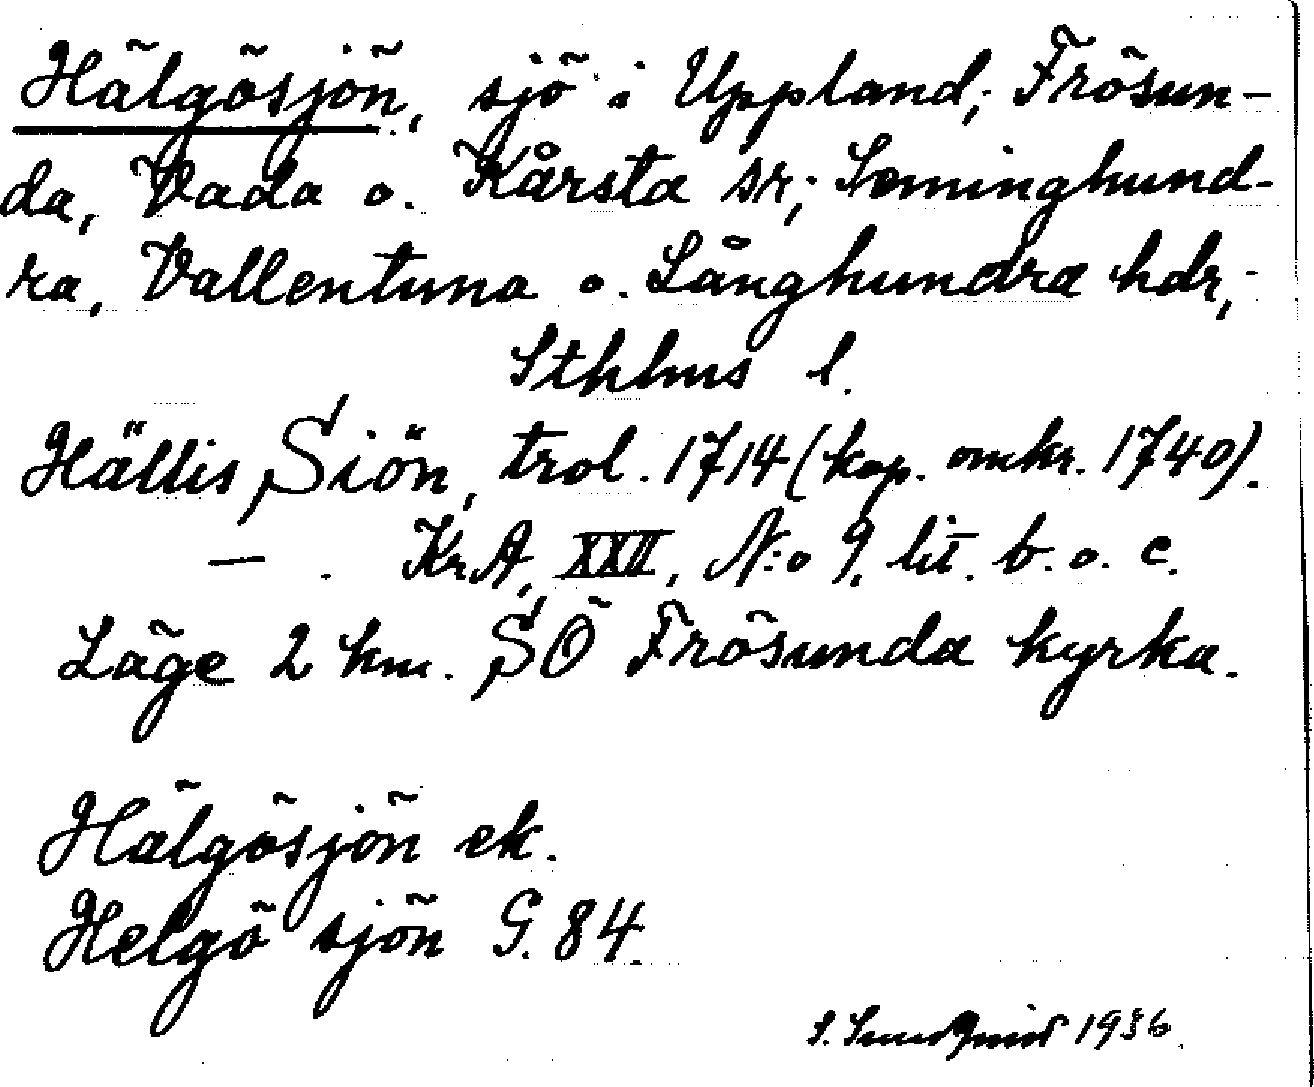 Hälgösjön, sjö i Uppland; Frösun-
da, Vada o. Kårsta sr; Seminghund-
ra, Vallentuna o. Långhundra hdr,
Sthlms l.
Hällis Siön, trol. 1714 (kop. omkr. 1740).
— . KrA, XXII, N:o 9, lit. b. o. c.
Läge 2 km. SÖ Frösunda kyrka.
Hälgösjön ek.
Helgö sjön G. 84.
S. Sundqvist 1936.